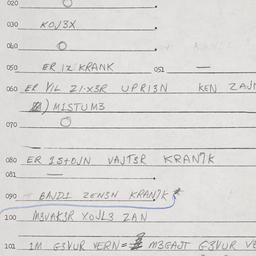 020 O
030 KOJ3X
040 O
050 ER IZ KRANK 051 —
060 ER VIL ZI·X3R UPRI3N KEN ZAJN
) MISTUM3
070 O
080 ER IS+OJN VAJT3R KRANK
081 —
090 BAJDI ZEN3N KRANK
100 M3VAK3R XOJL3 ZAN
101 IM G3VUR VERN= M3GAJT G3VUR VE